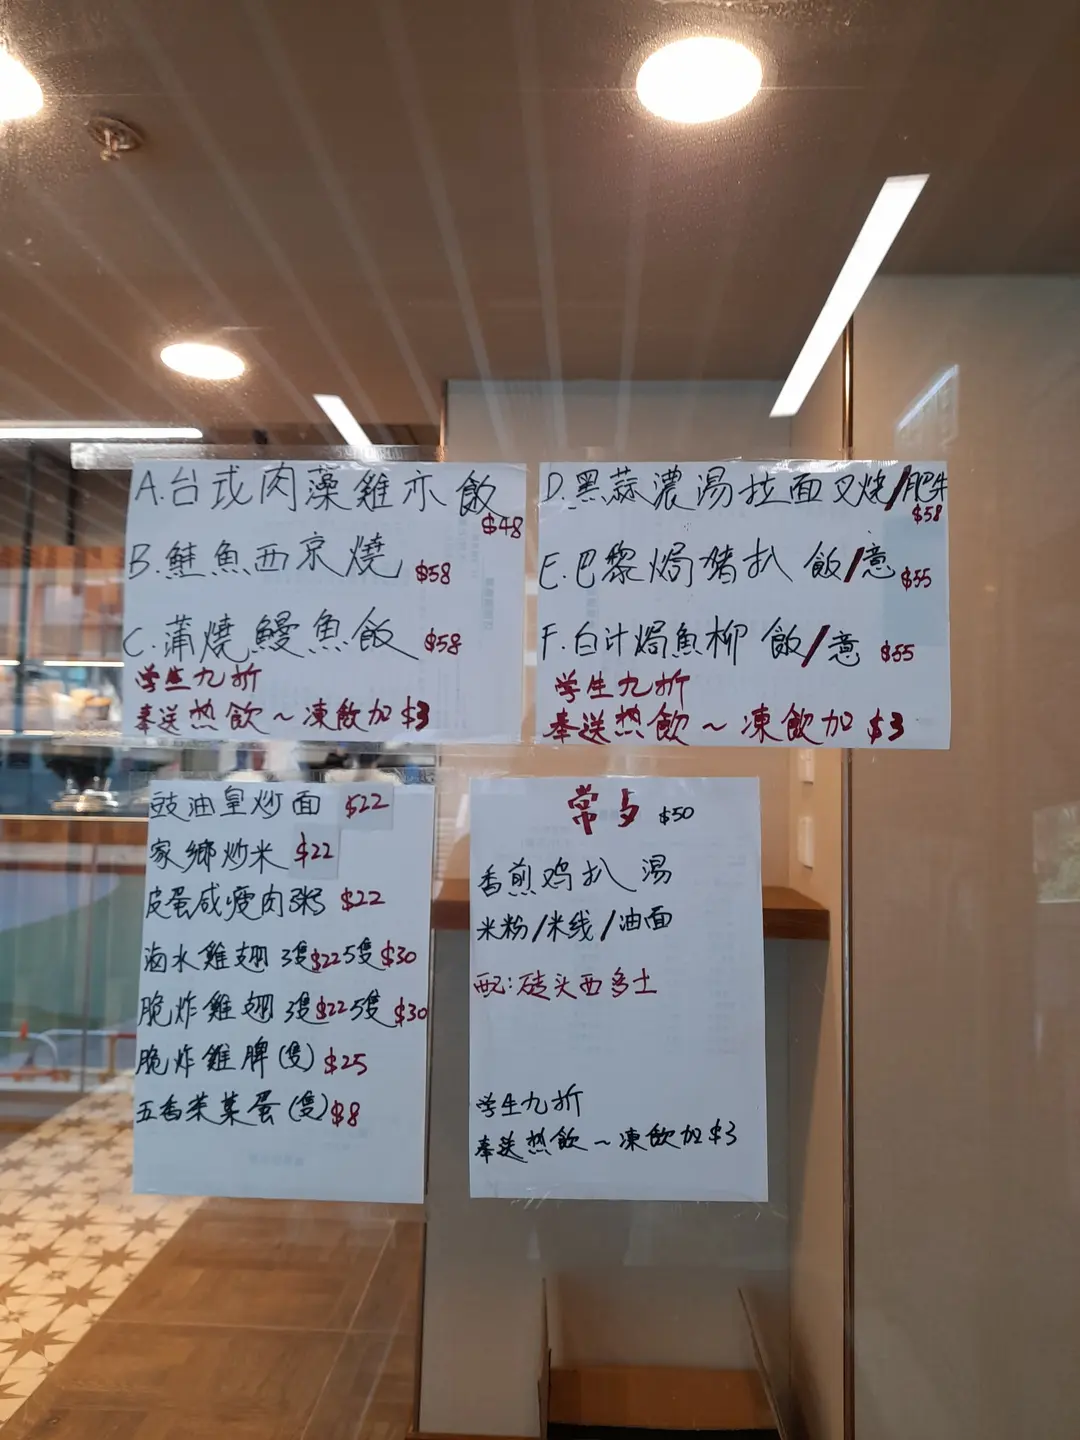 A.台式肉藻雞亦飯 $48
B.鮭魚西京燒 $58
C.蒲燒鰻魚飯 $58
学生九折
奉送热飲~凍飲加$3
D.黑蒜濃湯拉面叉烧/肥牛 $58
E.巴黎焗猪扒 飯/意 $55
F.白汁焗魚柳 飯/意 $55
学生九折
奉送热飲~凍飲加$3
豉油皇炒面 $22
家鄉炒米 $22
皮蛋咸瘦肉粥 $22
滷水雞翅 3隻$22 5隻$30
脆炸雞翅 3隻$22 5隻$30
脆炸雞脾(隻) $25
五香茶葉蛋(隻) $8
常夕 $50
香煎鸡扒 湯
米粉/米线/油面
配:砖头西多士
学生九折
奉送热飲~凍飲加$3